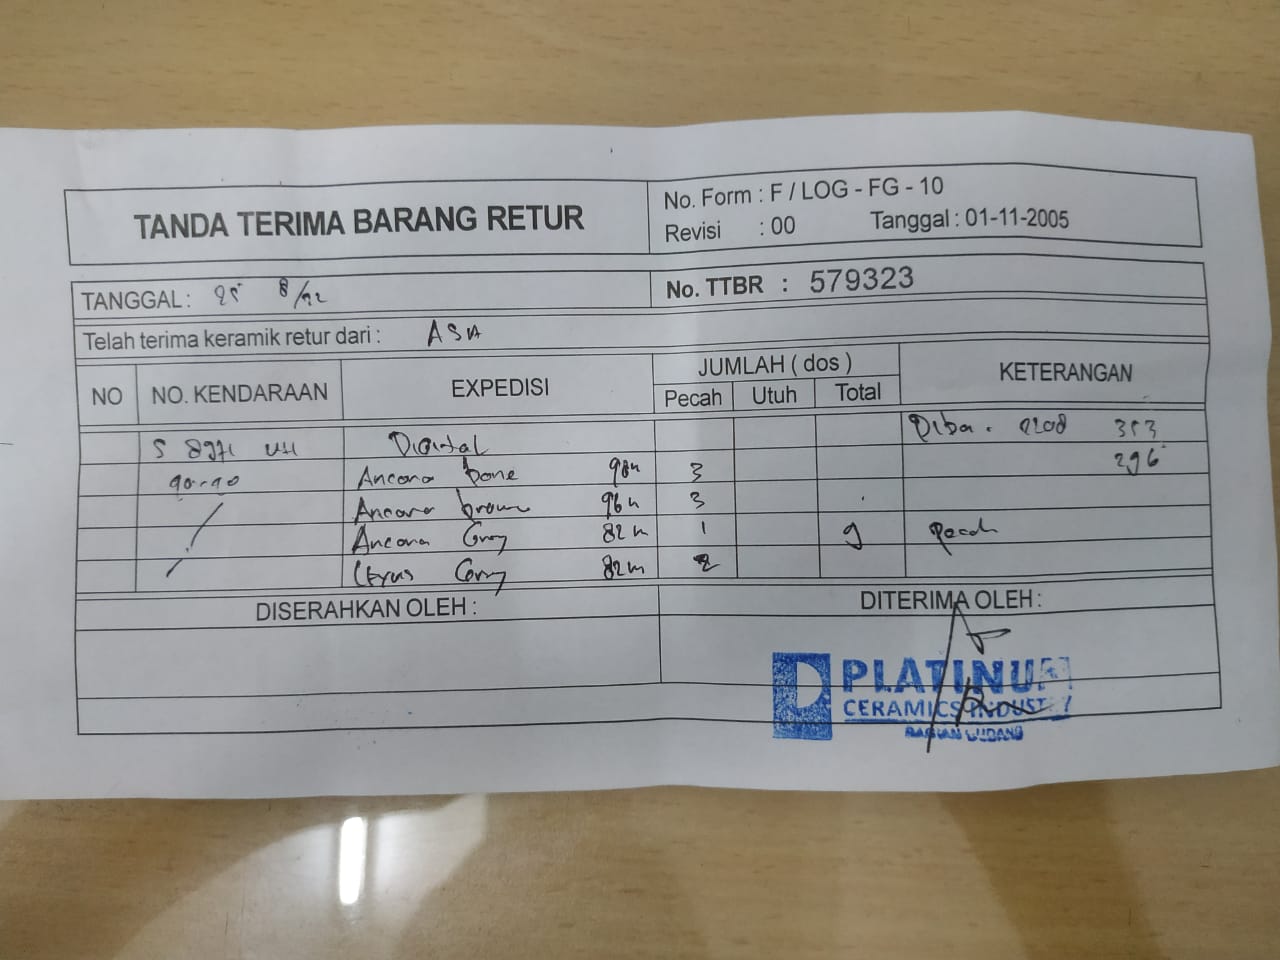 TANDA TERIMA BARANG RETUR
No. Form : F / LOG - FG - 10
Revisi : 00 Tanggal : 01-11-2005
TANGGAL : 25 8/22
No. TTBR : 579323
Telah terima keramik retur dari : ASA
NO NO. KENDARAAN EXPEDISI JUMLAH ( dos ) KETERANGAN
Pecah Utuh Total
S 8971 UH Digital 2208 353
90-90 Ancona bone 98n 3 296
Ancona brown 96n 3
Ancona Grey 82m 1 9 Pecah
Grey 82m 2
DISERAHKAN OLEH : DITERIMA OLEH :
PLATINUM
CERAMICS INDUSTRY
BAGIAN GUDANG